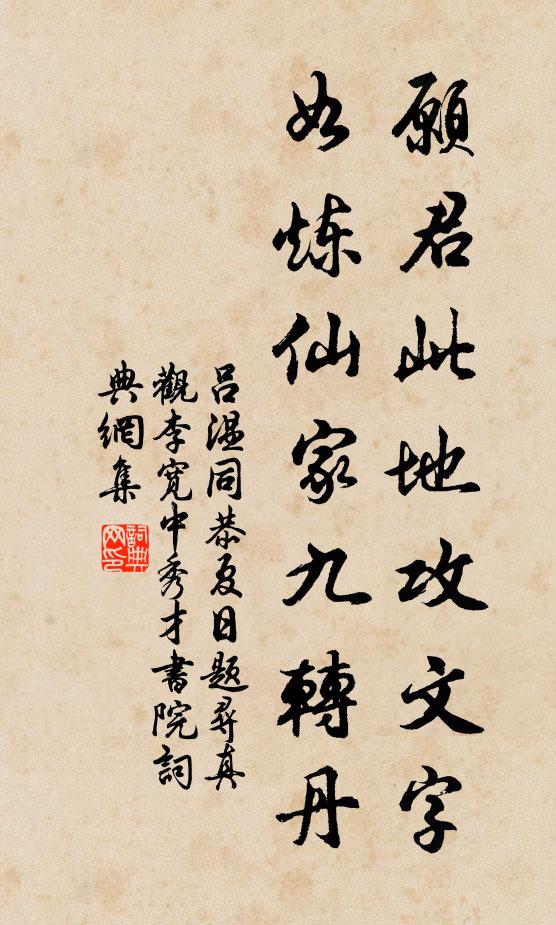 願君此地攻文字
如炼仙家九轉丹
呂温同恭夏日題尋真
觀李寛中秀才書院詞
典網集
詞典網印